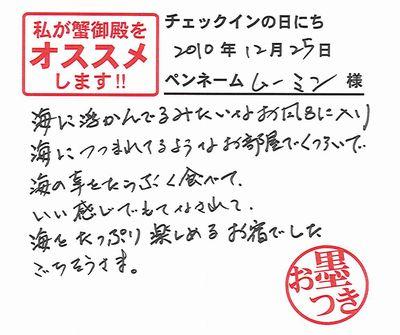 私が蟹御殿を
オススメ
します!!
チェックインの日にち
2010年12月25日
ペンネーム ムーミン 様
海に浮かんでるみたいなお風呂に入り
海につつまれてるようなお部屋でくつろいで、
海の幸をたらふく食べて、
いい感じでもてなされて、
海をたっぷり楽しめるお宿でした
ごちそうさま。
お墨つき